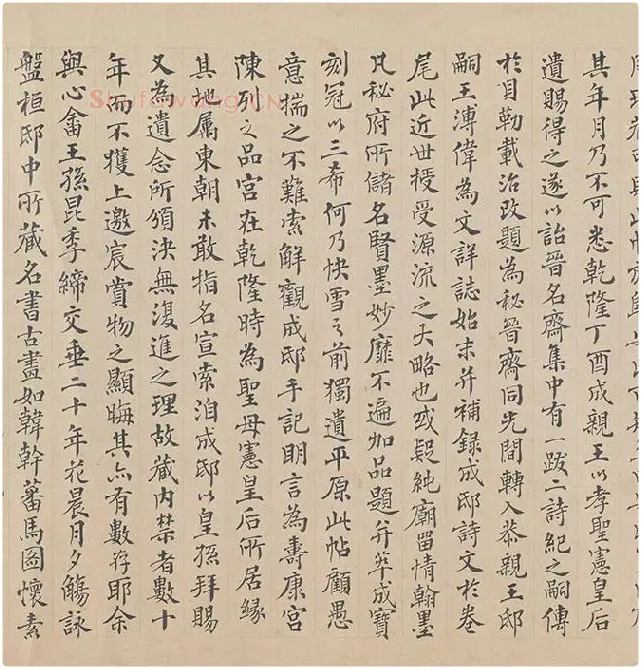 其年月乃不可悉乾隆丁酉成親王以孝聖憲皇后
遺賜得之遂以詒晉名齋集中有一跋二詩紀之嗣傳
於貝勒載治改題為祕晉齋同光間轉入恭親王邸
嗣王溥偉為文詳誌始末并補錄成邸詩文於卷
尾此近世授受源流之大略也或疑純廟留情翰墨
凡祕府所儲名賢墨妙靡不遍加品題并萃成寶
刻冠以三希何乃快雪之前獨遺平原此帖顧愚
意揣之不難索解觀成邸手記明言為壽康宮
陳列之品宮在乾隆時為聖母憲皇后所居緣
其地屬東朝未敢指名宣索洎成邸以皇孫拜賜
又為遺念所頒決無復進之理故藏內禁者數十
年而不獲上邀宸賞物之顯晦其亦有數存耶余
與心畬王孫昆季締交垂二十年花晨月夕觴詠
盤桓邸中所藏名書古畫如韓幹蕃馬圖懷素
Shufawang.CN